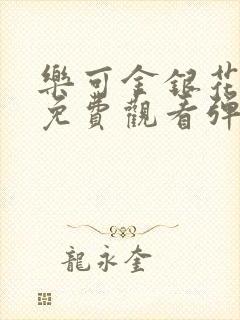 樂可金銀花
免費觀看彈
龍永奎